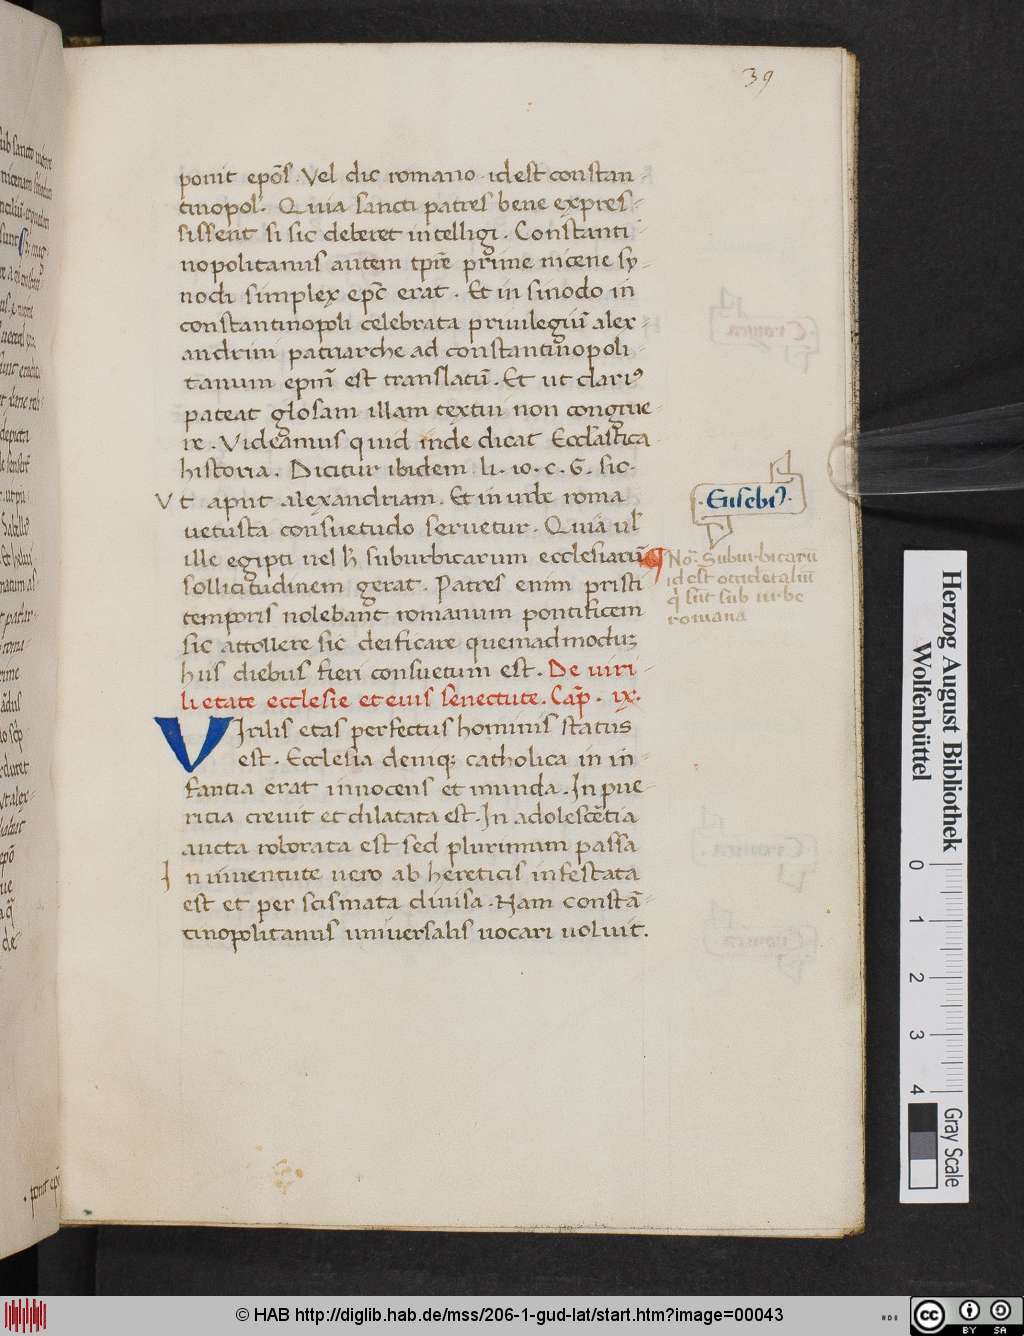 39
ponit ep̄os. Vel dic romano id est constan-
tinopol. Quia sancti patres bene expres-
sissent si sic deberet intelligi. Constanti-
nopolitanus autem tp̄re prime nicene sy-
nodi simplex ep̄c erat. Et in sinodo in
constantinopoli celebrata priuilegiū alex-
andrini patriarche ad constantinopoli-
tanum ep̄m est translatū. Et ut clariꝰ
pateat glosam illam textui non congrue-
re. Videamus quid inde dicat Eccl̄astica
historia. Dicitur ibidem li. 10. c. 6. sic.
Vt aput alexandriam. Et in urbe roma
uetusta consuetudo seruetur. Quia ul̄
ille egipti uel h̄ suburbicarum ecclesiarū
sollicitudinem gerat. Patres enim pristi
temporis nolebant romanum pontificem
sic attollere sic deificare quemadmoduꝫ
hiis diebus fieri consuetum est. De uiri-
li etate ecclesie et eius senectute. Cap̄. ix.
Virilis etas perfectus hominis status
est. Ecclesia deniqꝫ catholica in in-
fantia erat innocens et munda. In pue-
ricia creuit et dilatata est. In adolescētia
aucta roborata est sed plurimum passa
In iuuentute uero ab hereticis infestata
est et per scismata diuisa. Nam constā-
tinopolitanus uniuersalis uocari uoluit.
.Eusebiꝰ.
No. Suburbicarū
id est occidētaliū
q̄ sūt sub urbe
romana
Herzog August Bibliothek
Wolfenbüttel
0 1 2 3 4
Gray Scale
© HAB http://diglib.hab.de/mss/206-1-gud-lat/start.htm?image=00043
cc BY SA